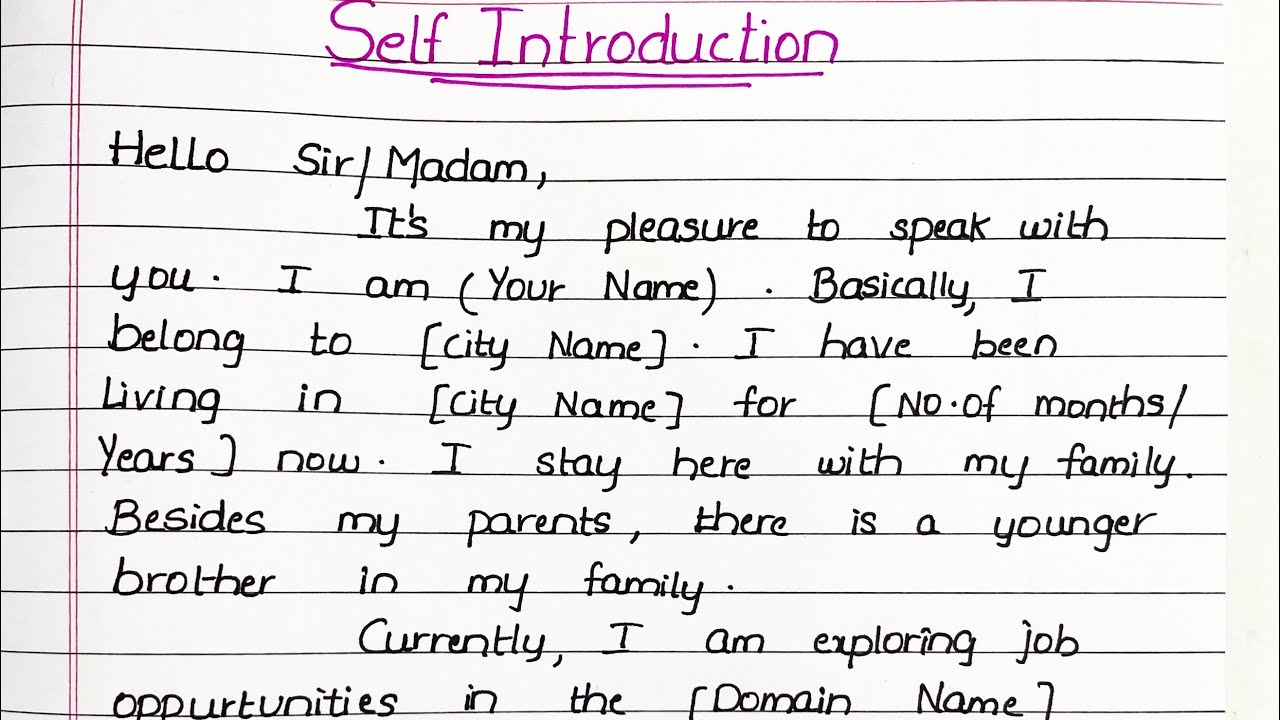 Self Introduction
Hello Sir/Madam,
It's my pleasure to speak with
you. I am (Your Name). Basically, I
belong to [City Name]. I have been
Living in [City Name] for [No. of months/
Years] now. I stay here with my family.
Besides my parents, there is a younger
brother in my family.
Currently, I am exploring job
oppurtunities in the [Domain Name]